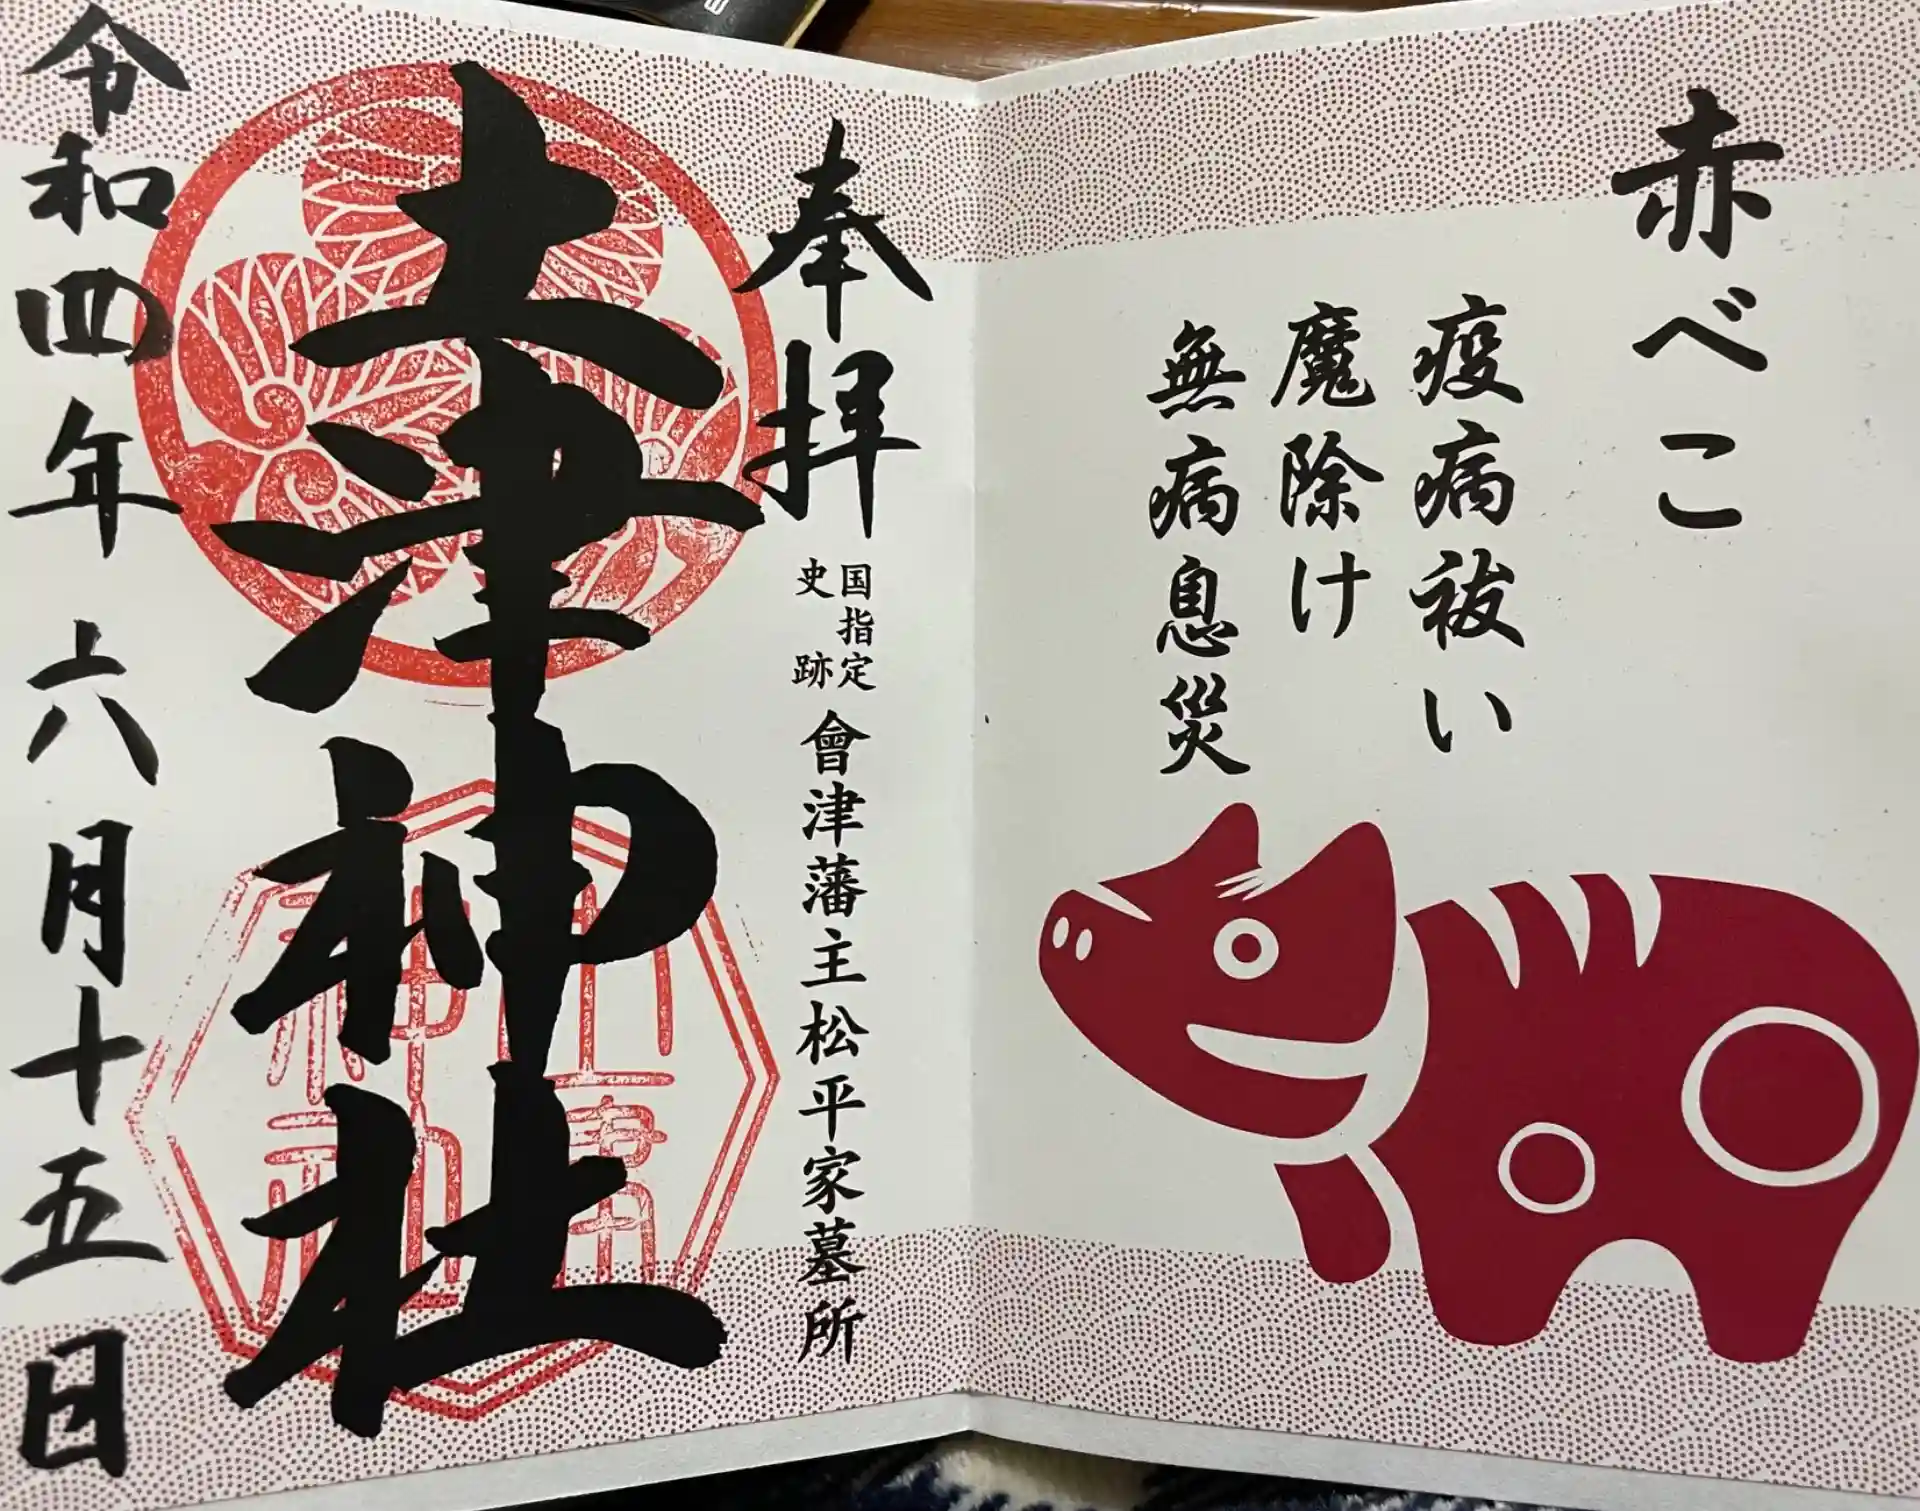 赤べこ
疫病祓い
魔除け
無病息災
奉拝
国指定
史跡
會津藩主松平家墓所
土津神社
令和四年六月十五日